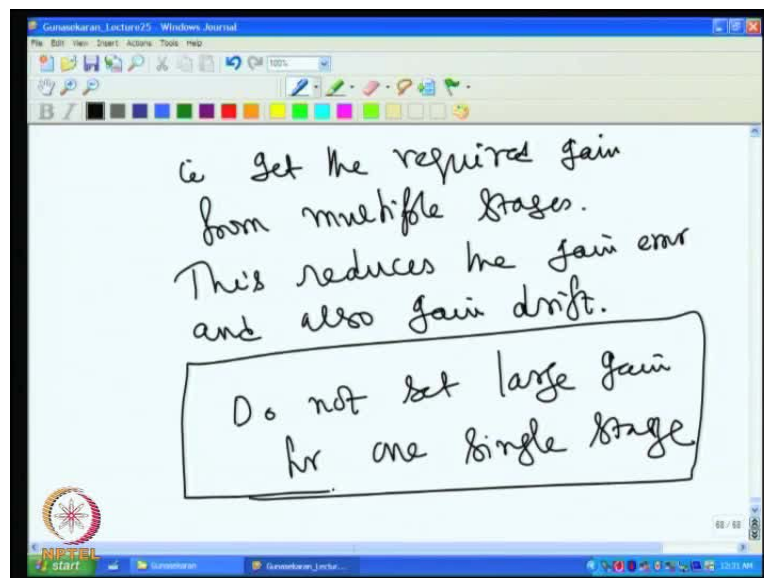 Gunasekaran_Lecture25 - Windows Journal
File Edit View Insert Actions Tools Help
100%
B I
ie get the required gain
from multiple stages.
This reduces the gain error
and also gain drift.
Do not set large gain
for one single stage
68 / 68
NPTEL
start Gunasekaran Gunasekaran_Lectur... 12:31 AM